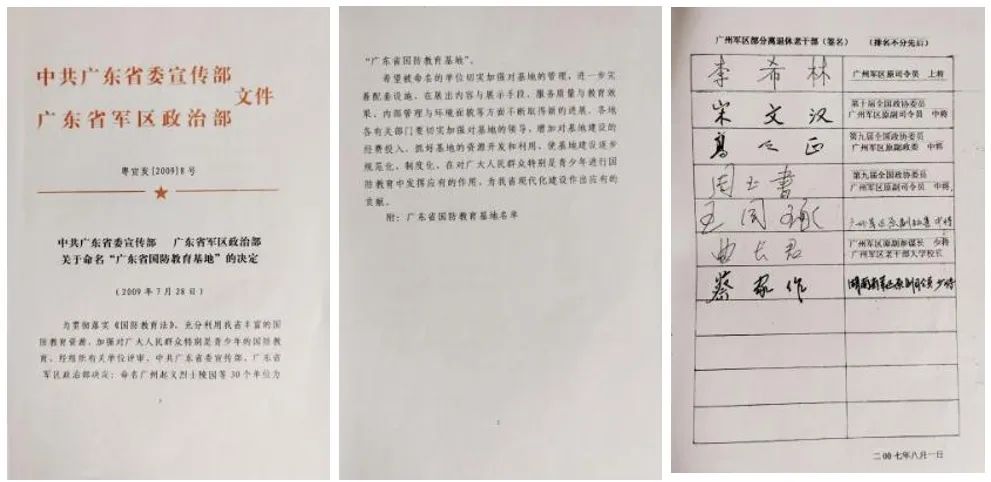 中共广东省委宣传部
广东省军区政治部
文件
粤宣发[2009]8号
中共广东省委宣传部 广东省军区政治部
关于命名“广东省国防教育基地”的决定
(2009年7月28日)
为贯彻落实《国防教育法》，充分利用我省丰富的国
防教育资源，加强对广大人民群众特别是青少年的国防教
育，经组织有关单位评审，中共广东省委宣传部、广东省
军区政治部决定：命名广州起义烈士陵园等30个单位为
“广东省国防教育基地”。
希望被命名的单位切实加强对基地的管理，进一步完
善配套设施，在展出内容与展示手段、服务质量与教育效
果、内部管理与环境面貌等方面不断取得新的进展。各地
各有关部门要切实加强对基地的领导，增加对基地建设的
经费投入，抓好基地的资源开发和利用，使基地建设逐步
规范化、制度化，在对广大人民群众特别是青少年进行国
防教育中发挥应有的作用，为我省现代化建设作出应有的
贡献。
附：广东省国防教育基地名单
2
广州军区部分离退休老干部（签名） （排名不分先后）
李希林 广州军区原司令员 上将
宋文汉 第十届全国政协委员
广州军区原副司令员 中将
第九届全国政协委员
广州军区原副政委 中将
周玉书 第九届全国政协委员
广州军区原副司令员 中将
曲长君 广州军区原副参谋长 少将
广州军区老干部大学校长
蔡家作
二00七年八月一日